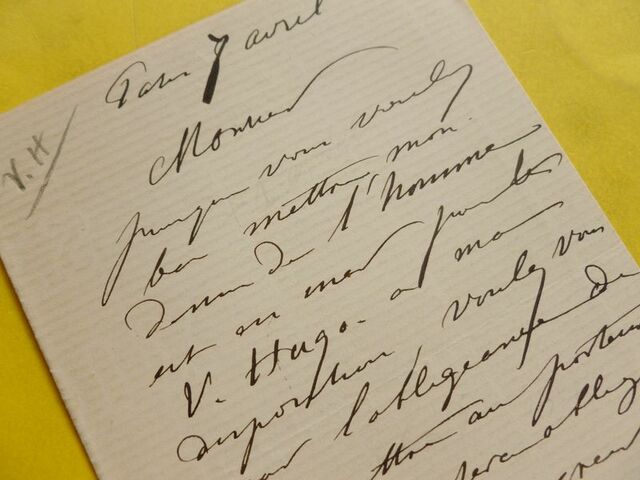 Paris 7 avril
V.H
Monsieur
puisque vous voulez
bien mettre mon
dessin de l'homme
est en mer pour le
V. Hugo. à ma
disposition, voulez vous
l'obligeance de
au porteur